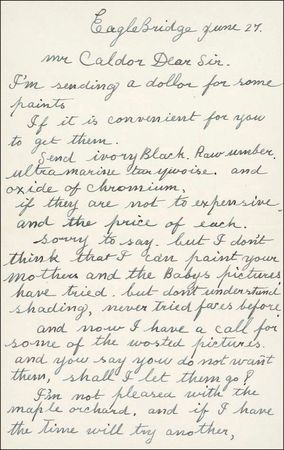 EagleBridge June 27.
Mr Caldor Dear Sir.
I'm sending a dollor for some
paints
If it is convenient for you
to get them.
Send ivory Black. Raw umber.
ultramarine turqwoise. and
oxide of chromium,
if they are not to expensive
and the price of each.
Sorry to say. but I don't
think that I can paint your
mothers and the Babys pictures
have tried. but dont understand
shading, never tried faces before
and now I have a call for
some of the wosted pictures.
and you say you do not want
them, shall I let them go?
I'm not pleased with the
maple orchard. and if I have
the time will try another,